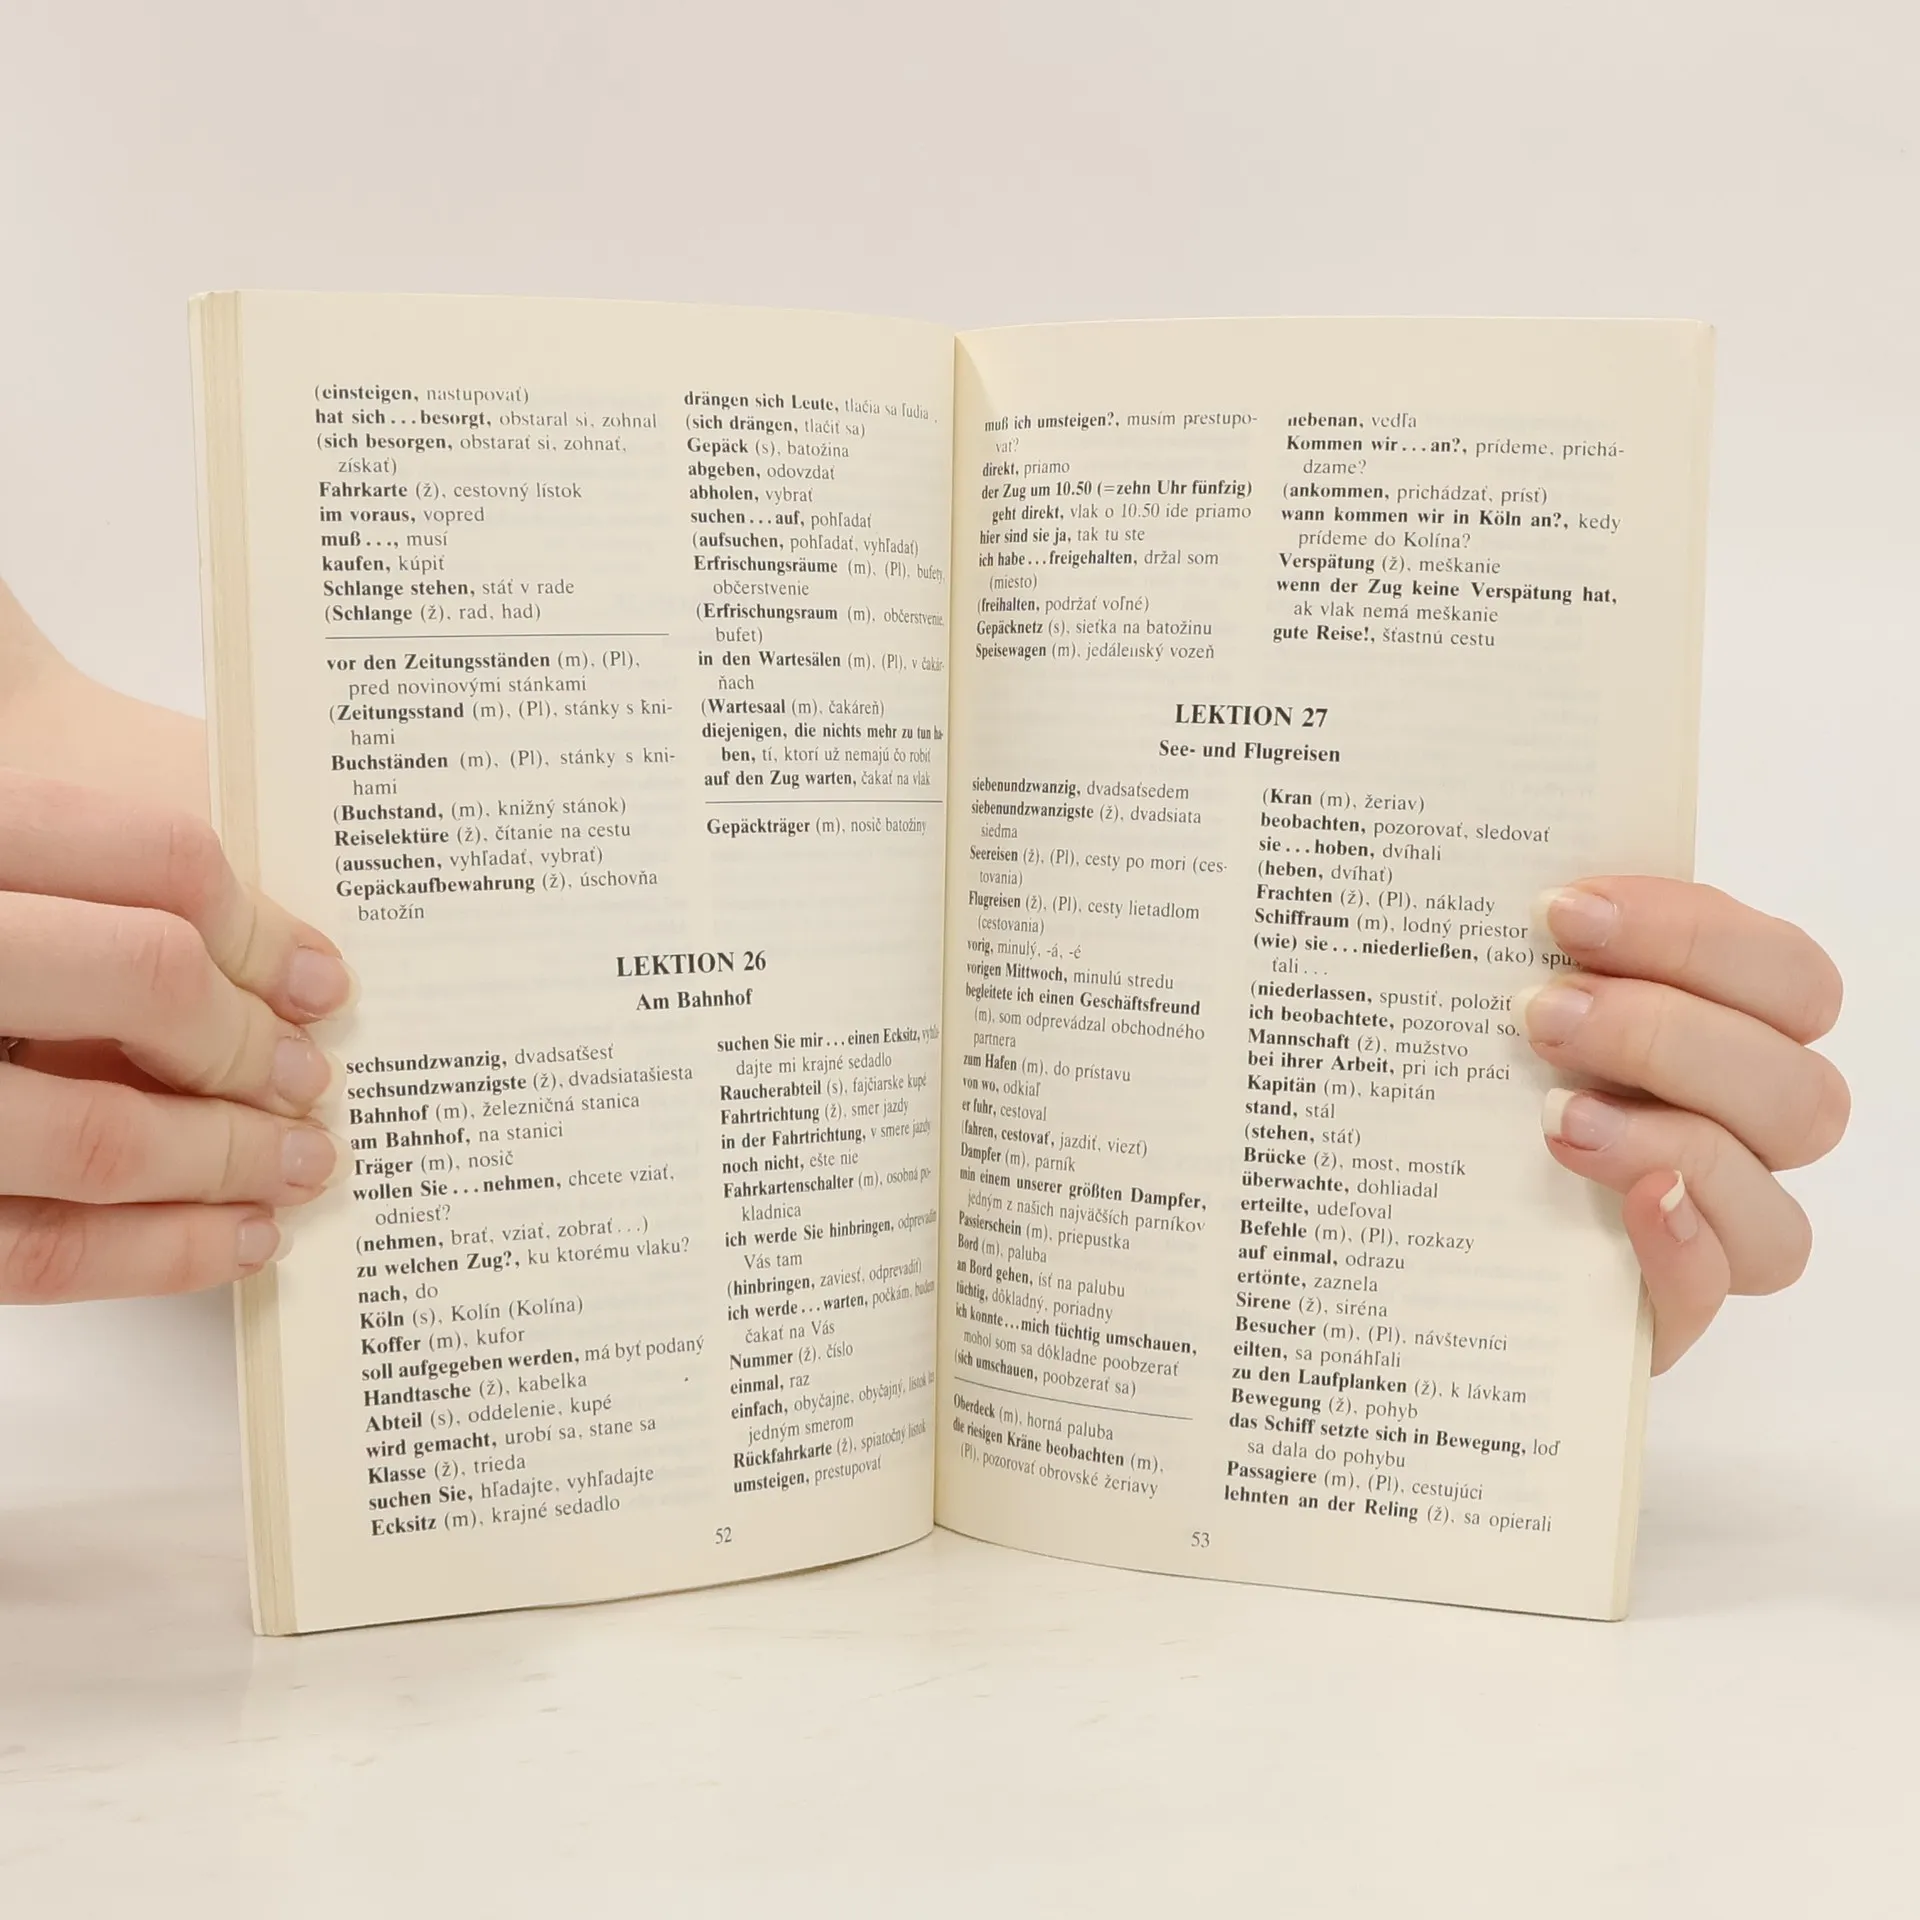 (einsteigen, nastupovať)
hat sich...besorgt, obstaral si, zohnal
(sich besorgen, obstarať si, zohnať,
získať)
Fahrkarte (ž), cestovný lístok
im voraus, vopred
muß..., musí
kaufen, kúpiť
Schlange stehen, stáť v rade
(Schlange (ž), rad, had)
vor den Zeitungsständen (m), (Pl),
pred novinovými stánkami
(Zeitungsstand (m), (Pl), stánky s kni-
hami
Buchständen (m), (Pl), stánky s kni-
hami
(Buchstand, (m), knižný stánok)
Reiselektüre (ž), čítanie na cestu
(aussuchen, vyhľadať, vybrať)
Gepäckaufbewahrung (ž), úschovňa
batožín
drängen sich Leute, tlačia sa ľudia
(sich drängen, tlačiť sa)
Gepäck (s), batožina
abgeben, odovzdať
abholen, vybrať
suchen...auf, pohľadať
(aufsuchen, pohľadať, vyhľadať)
Erfrischungsräume (m), (Pl), bufety,
občerstvenie
(Erfrischungsraum (m), občerstvenie,
bufet)
in den Wartesälen (m), (Pl), v čakár-
ňach
(Wartesaal (m), čakáreň)
diejenigen, die nichts mehr zu tun ha-
ben, tí, ktorí už nemajú čo robiť
auf den Zug warten, čakať na vlak
Gepäckträger (m), nosič batožiny
LEKTION 26
Am Bahnhof
sechsundzwanzig, dvadsaťšesť
sechsundzwanzigste (ž), dvadsiatašiesta
Bahnhof (m), železničná stanica
am Bahnhof, na stanici
Träger (m), nosič
wollen Sie...nehmen, chcete vziať,
odniesť?
(nehmen, brať, vziať, zobrať...)
zu welchen Zug?, ku ktorému vlaku?
nach, do
Köln (s), Kolín (Kolína)
Koffer (m), kufor
soll aufgegeben werden, má byť podaný
Handtasche (ž), kabelka
Abteil (s), oddelenie, kupé
wird gemacht, urobí sa, stane sa
Klasse (ž), trieda
suchen Sie, hľadajte, vyhľadajte
Ecksitz (m), krajné sedadlo
suchen Sie mir...einen Ecksitz, vyhľa-
dajte mi krajné sedadlo
Raucherabteil (s), fajčiarske kupé
Fahrtrichtung (ž), smer jazdy
in der Fahrtrichtung, v smere jazdy
noch nicht, ešte nie
Fahrkartenschalter (m), osobná po-
kladnica
ich werde Sie hinbringen, odprevadím
Vás tam
(hinbringen, zaviesť, odprevadiť)
ich werde...warten, počkám, budem
čakať na Vás
Nummer (ž), číslo
einmal, raz
einfach, obyčajne, obyčajný, lístok
jedným smerom
Rückfahrkarte (ž), spiatočný lístok
umsteigen, prestupovať
52
muß ich umsteigen?, musím prestupo-
vať?
direkt, priamo
der Zug um 10.50 (=zehn Uhr fünfzig)
geht direkt, vlak o 10.50 ide priamo
hier sind sie ja, tak tu ste
ich habe...freigehalten, držal som
(miesto)
(freihalten, podržať voľné)
Gepäcknetz (s), sieťka na batožinu
Speisewagen (m), jedálenský vozeň
nebenan, vedľa
Kommen wir...an?, prídeme, prichá-
dzame?
(ankommen, prichádzať, prísť)
wann kommen wir in Köln an?, kedy
prídeme do Kolína?
Verspätung (ž), meškanie
wenn der Zug keine Verspätung hat,
ak vlak nemá meškanie
gute Reise!, šťastnú cestu
LEKTION 27
See- und Flugreisen
siebenundzwanzig, dvadsaťsedem
siebenundzwanzigste (ž), dvadsiata
siedma
Seereisen (ž), (Pl), cesty po mori (ces-
tovania)
Flugreisen (ž), (Pl), cesty lietadlom
(cestovania)
vorig, minulý, -á, -é
vorigen Mittwoch, minulú stredu
begleitete ich einen Geschäftsfreund
(m), som odprevádzal obchodného
partnera
zum Hafen (m), do prístavu
von wo, odkiaľ
er fuhr, cestoval
(fahren, cestovať, jazdiť, viezť)
Dampfer (m), parník
min einem unserer größten Dampfer,
jedným z našich najväčších parníkov
Passierschein (m), priepustka
Bord (m), paluba
an Bord gehen, ísť na palubu
tüchtig, dôkladný, poriadny
ich konnte...mich tüchtig umschauen,
mohol som sa dôkladne poobzerať
(sich umschauen, poobzerať sa)
Oberdeck (m), horná paluba
die riesigen Kräne beobachten (m),
(Pl), pozorovať obrovské žeriavy
(Kran (m), žeriav)
beobachten, pozorovať, sledovať
sie...hoben, dvíhali
(heben, dvíhať)
Frachten (ž), (Pl), náklady
Schiffraum (m), lodný priestor
(wie) sie...niederließen, (ako) spus
ťali...
(niederlassen, spustiť, položiť
ich beobachtete, pozoroval so.
Mannschaft (ž), mužstvo
bei ihrer Arbeit, pri ich práci
Kapitän (m), kapitán
stand, stál
(stehen, stáť)
Brücke (ž), most, mostík
überwachte, dohliadal
erteilte, udeľoval
Befehle (m), (Pl), rozkazy
auf einmal, odrazu
ertönte, zaznela
Sirene (ž), siréna
Besucher (m), (Pl), návštevníci
eilten, sa ponáhľali
zu den Laufplanken (ž), k lávkam
Bewegung (ž), pohyb
das Schiff setzte sich in Bewegung, loď
sa dala do pohybu
Passagiere (m), (Pl), cestujúci
lehnten an der Reling (ž), sa opierali
53